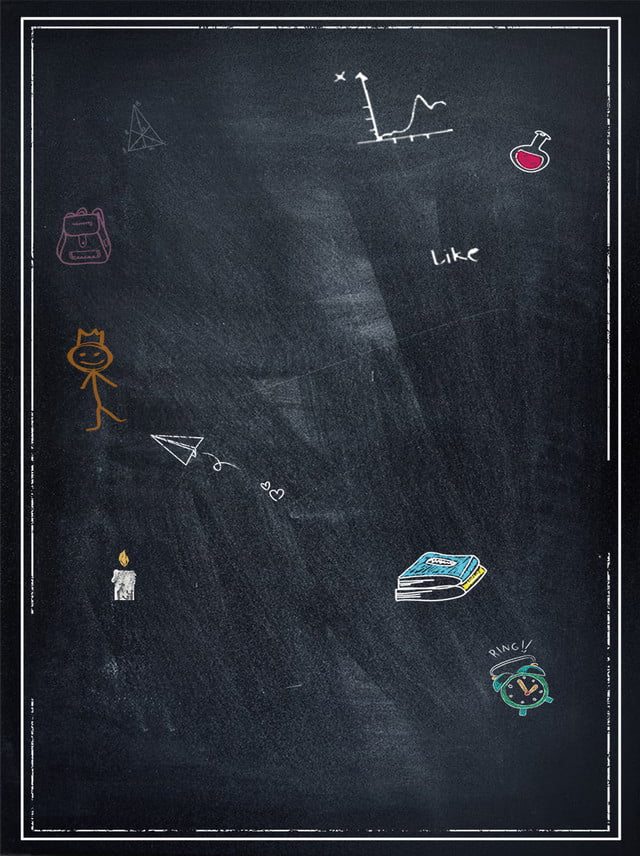 x
Like
RING!!